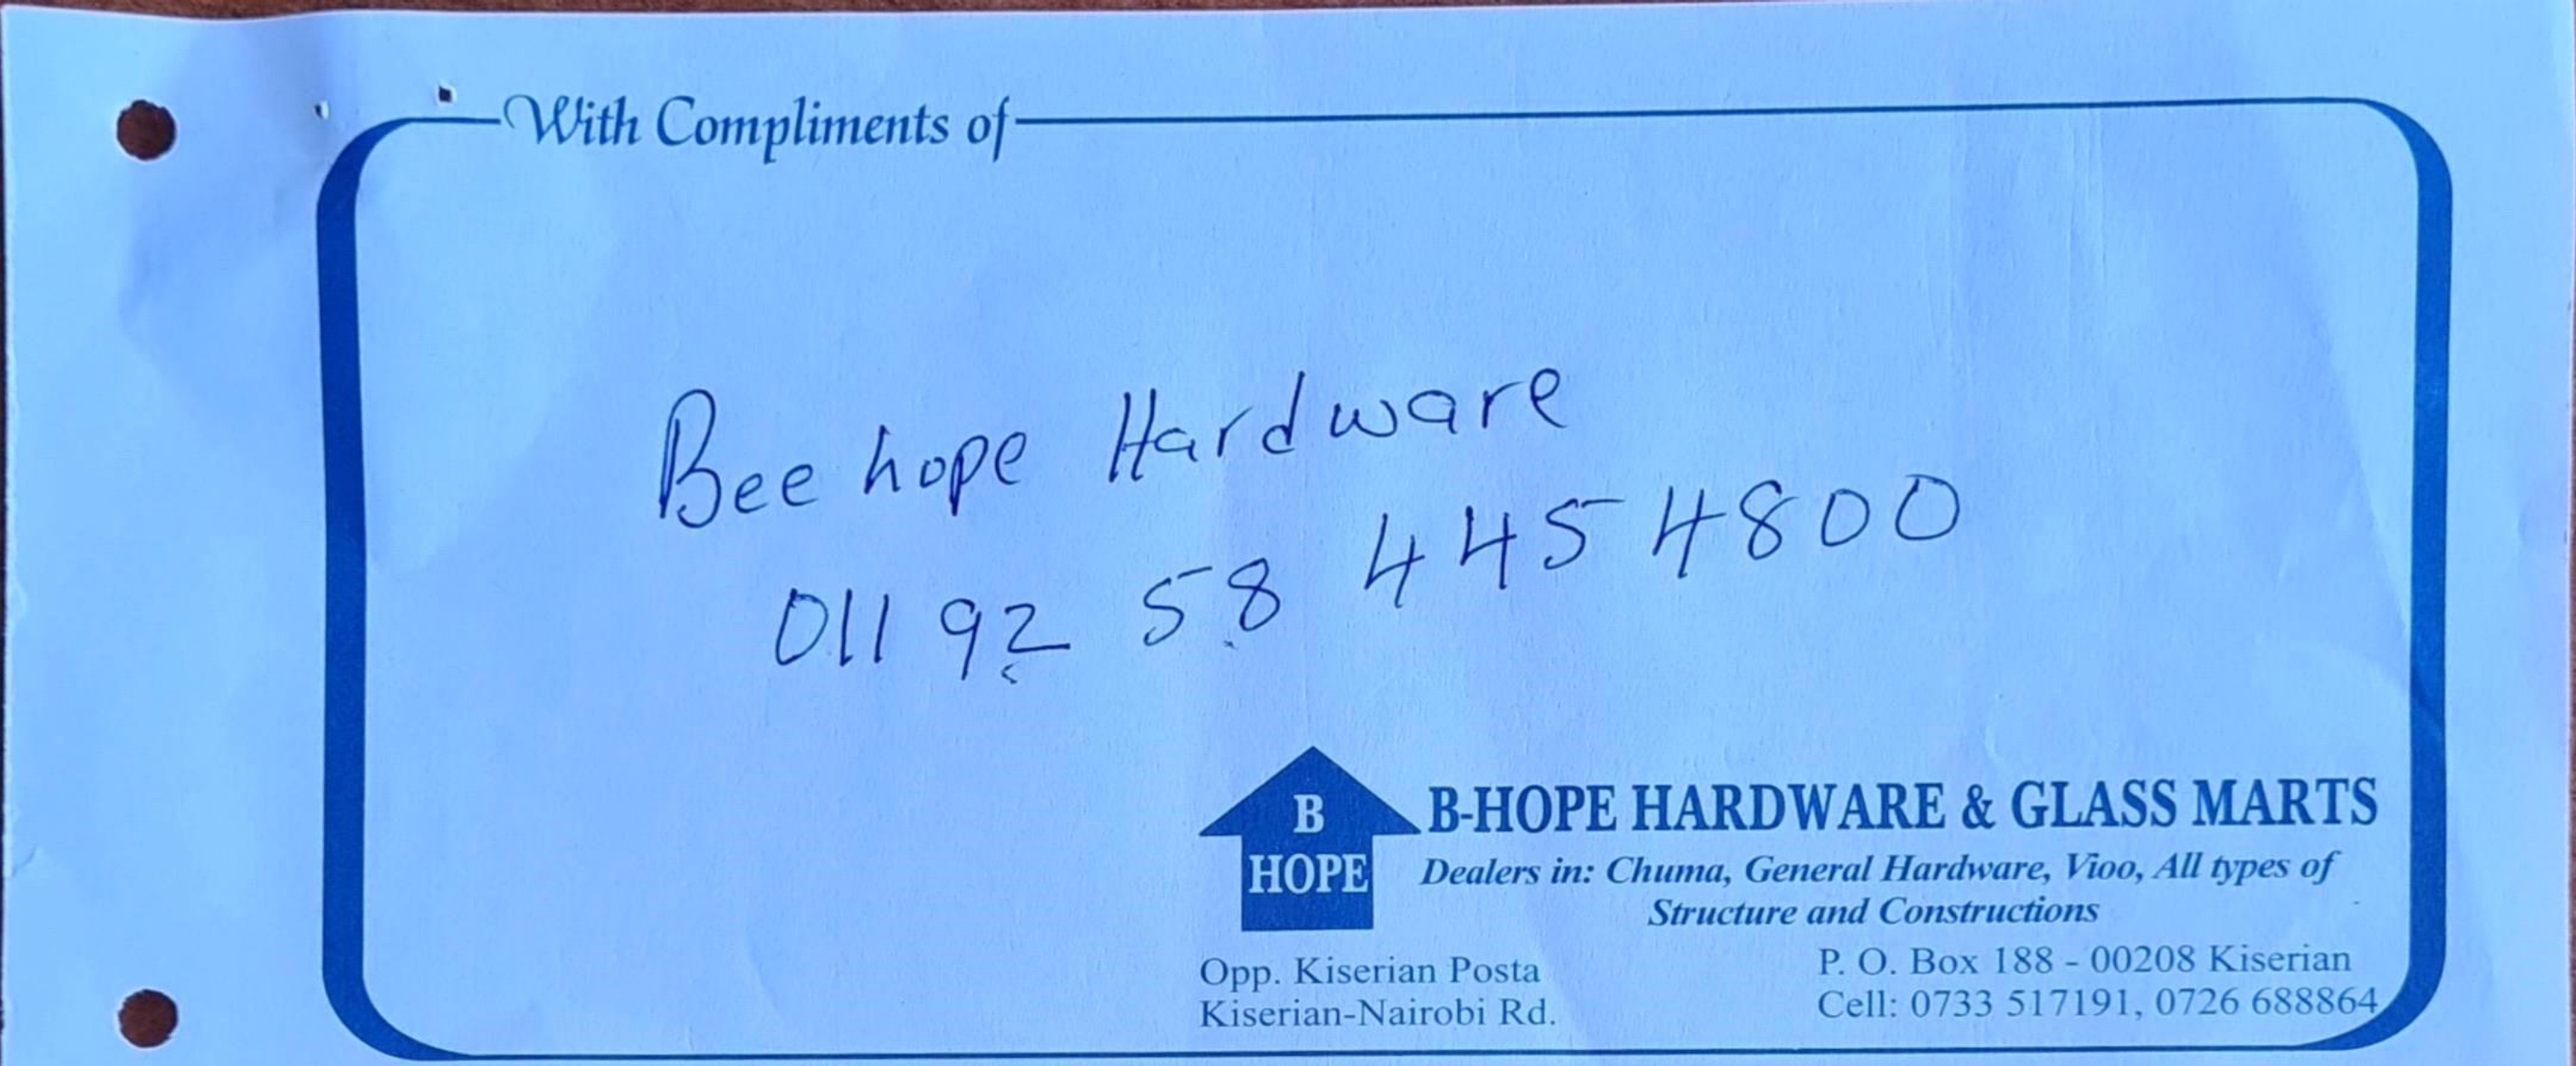 With Compliments of
Bee hope Hardware
01192 58 4454800
B
HOPE
B-HOPE HARDWARE & GLASS MARTS
Dealers in: Chuma, General Hardware, Vioo, All types of
Structure and Constructions
Opp. Kiserian Posta
Kiserian-Nairobi Rd.
P. O. Box 188 - 00208 Kiserian
Cell: 0733 517191, 0726 688864